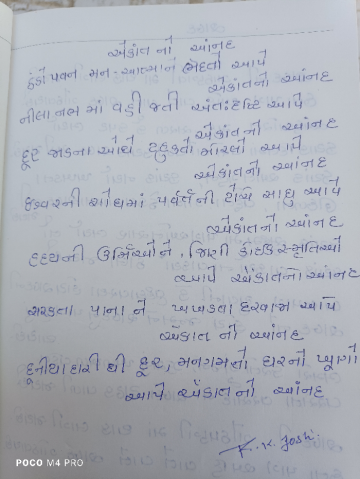 એકાંત નો આંનદ
ઠંડો પવન મન-આત્માને ભેદતો આપે
એકાંતનો આંનદ
નીલા નભ માં વહી જતી અંતઃદ્રષ્ટિ આપે
એકાંતનો આંનદ
દૂર ઝાડના ઓથે ટહુકતો મોરલો આપે
એકાંતનો આંનદ
ઇશ્વરની શોધમાં પર્વતની ટોચે સાધુ આપે
એકાંતનો આંનદ
હૃદયની ઉર્મિઓને, જિણી ઝીણી સ્મૃતિઓ
આપે એકાંતનો આંનદ
સરકતા પાના ને આપે
એકાંત નો આંનદ
દૂનીયાદારી થી દૂર, મનગમતો
આપે એકાંતનો આંનદ
K. K. Joshi
POCO M4 PRO